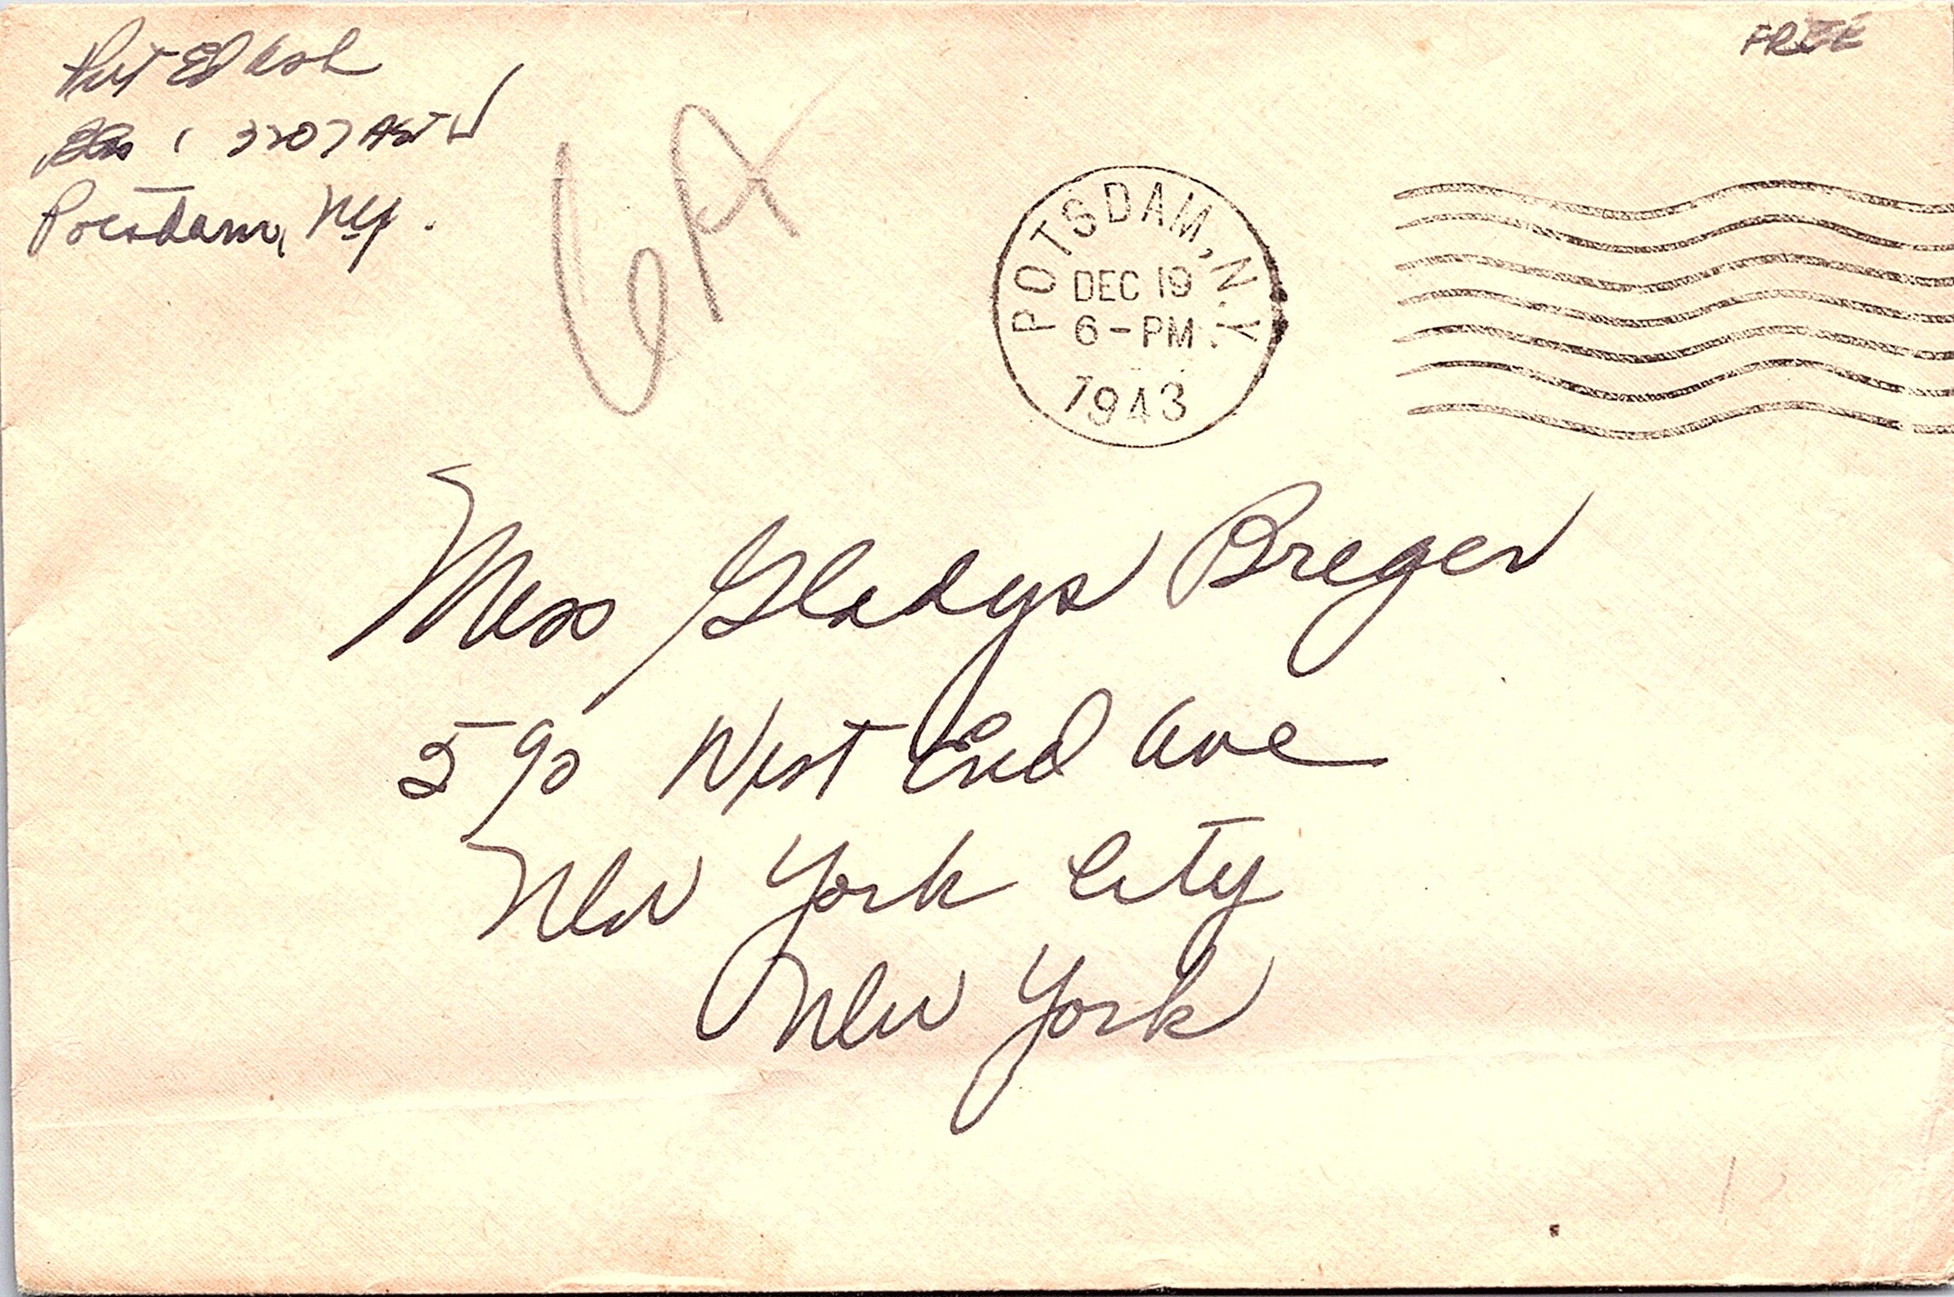 Pvt Ed Ash
1 3207 ASTU
Potsdam, N.Y.
FREE
6A
POTSDAM, N.Y.
DEC 19
6-PM
1943
Miss Gladys Breger
590 West End Ave
New York City
New York